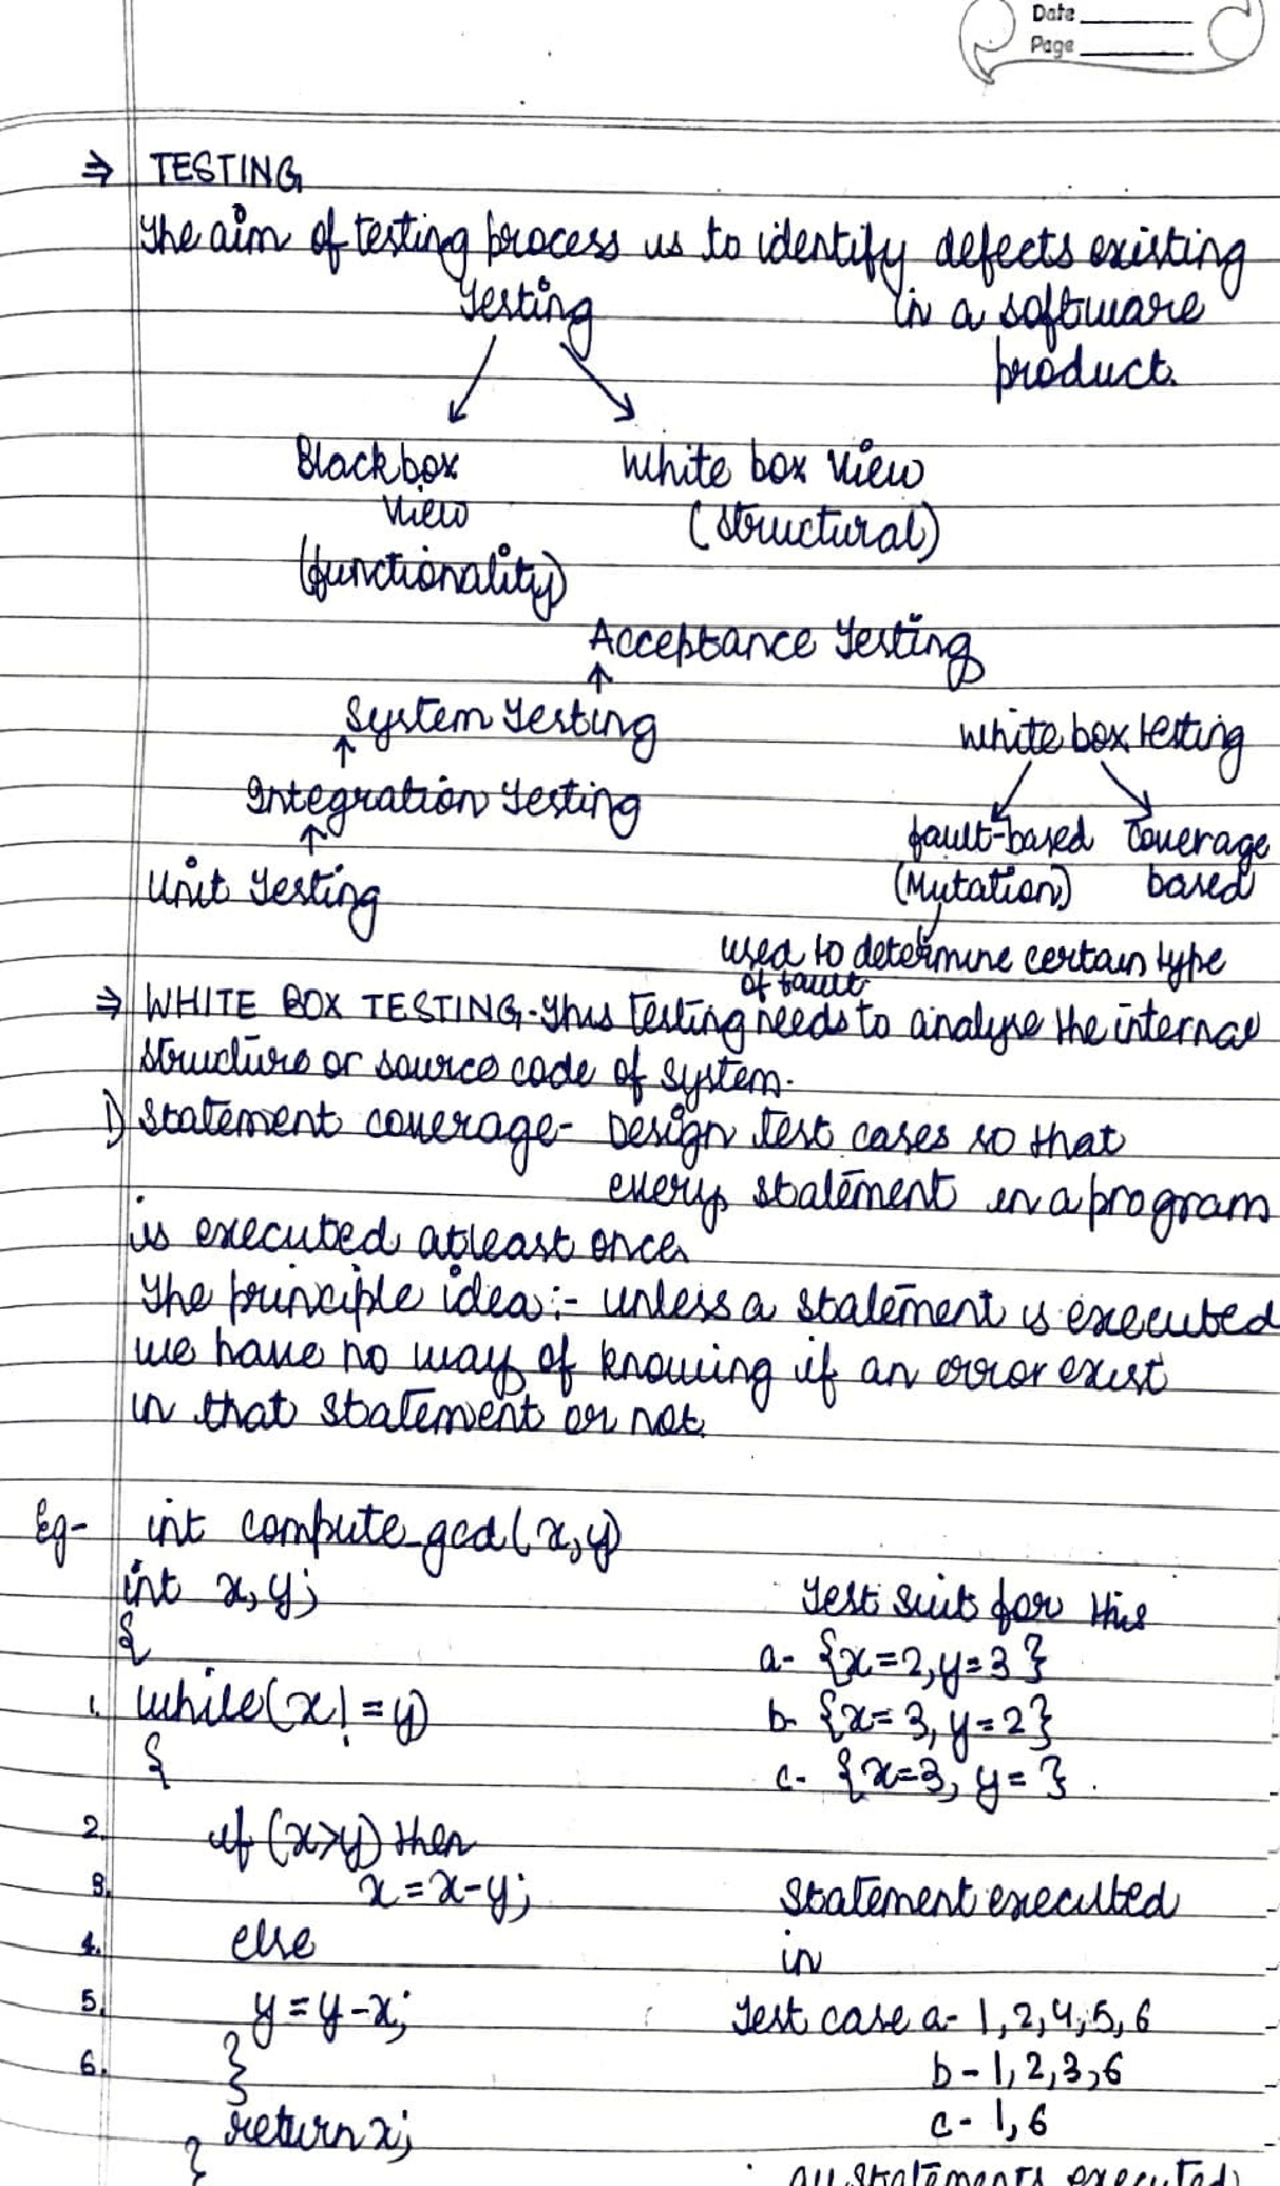 Date
Page
⇒ TESTING
The aim of testing process is to identify defects existing
in a software
product.
Testing
Blackbox
view
(functionality)
White box view
(structural)
Acceptance Testing
↑
System Testing
↑
Integration Testing
↑
Unit Testing
white box testing
fault-based
(Mutation)
Coverage
based
used to determine certain type
of fault
⇒ WHITE BOX TESTING - This testing needs to analyse the internal
structure or source code of system.
1) Statement coverage - Design test cases so that
every statement in a program
is executed atleast once.
The principle idea :- unless a statement is executed
we have no way of knowing if an error exist
in that statement or not.
Eg- int compute_gcd(x,y)
int x,y;
{
1. while(x!=y)
{
2. if (x>y) then
3. x=x-y;
4. else
5. y=y-x;
}
6.
return x;
}
Test suit for this
a- {x=2,y=3}
b- {x=3,y=2}
c- {x=3, y= }
Statement executed
in
Test case a- 1,2,4,5,6
b- 1,2,3,6
c- 1,6
all statements executed